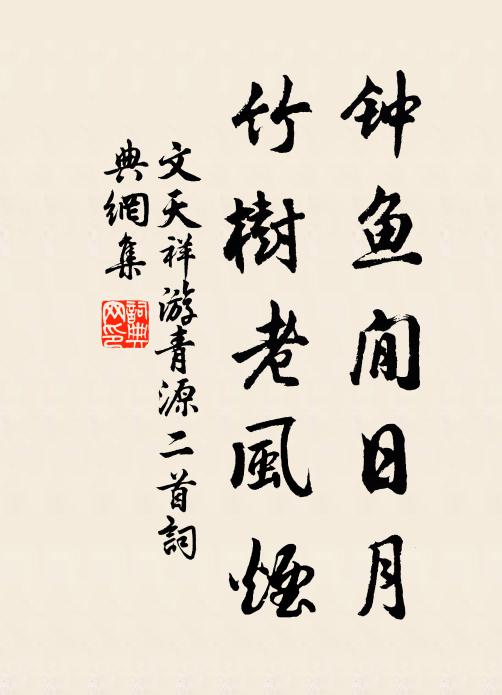 钟鱼闲日月
竹樹老風煙
文天祥游青源二首詞
典網集
詞典
网印